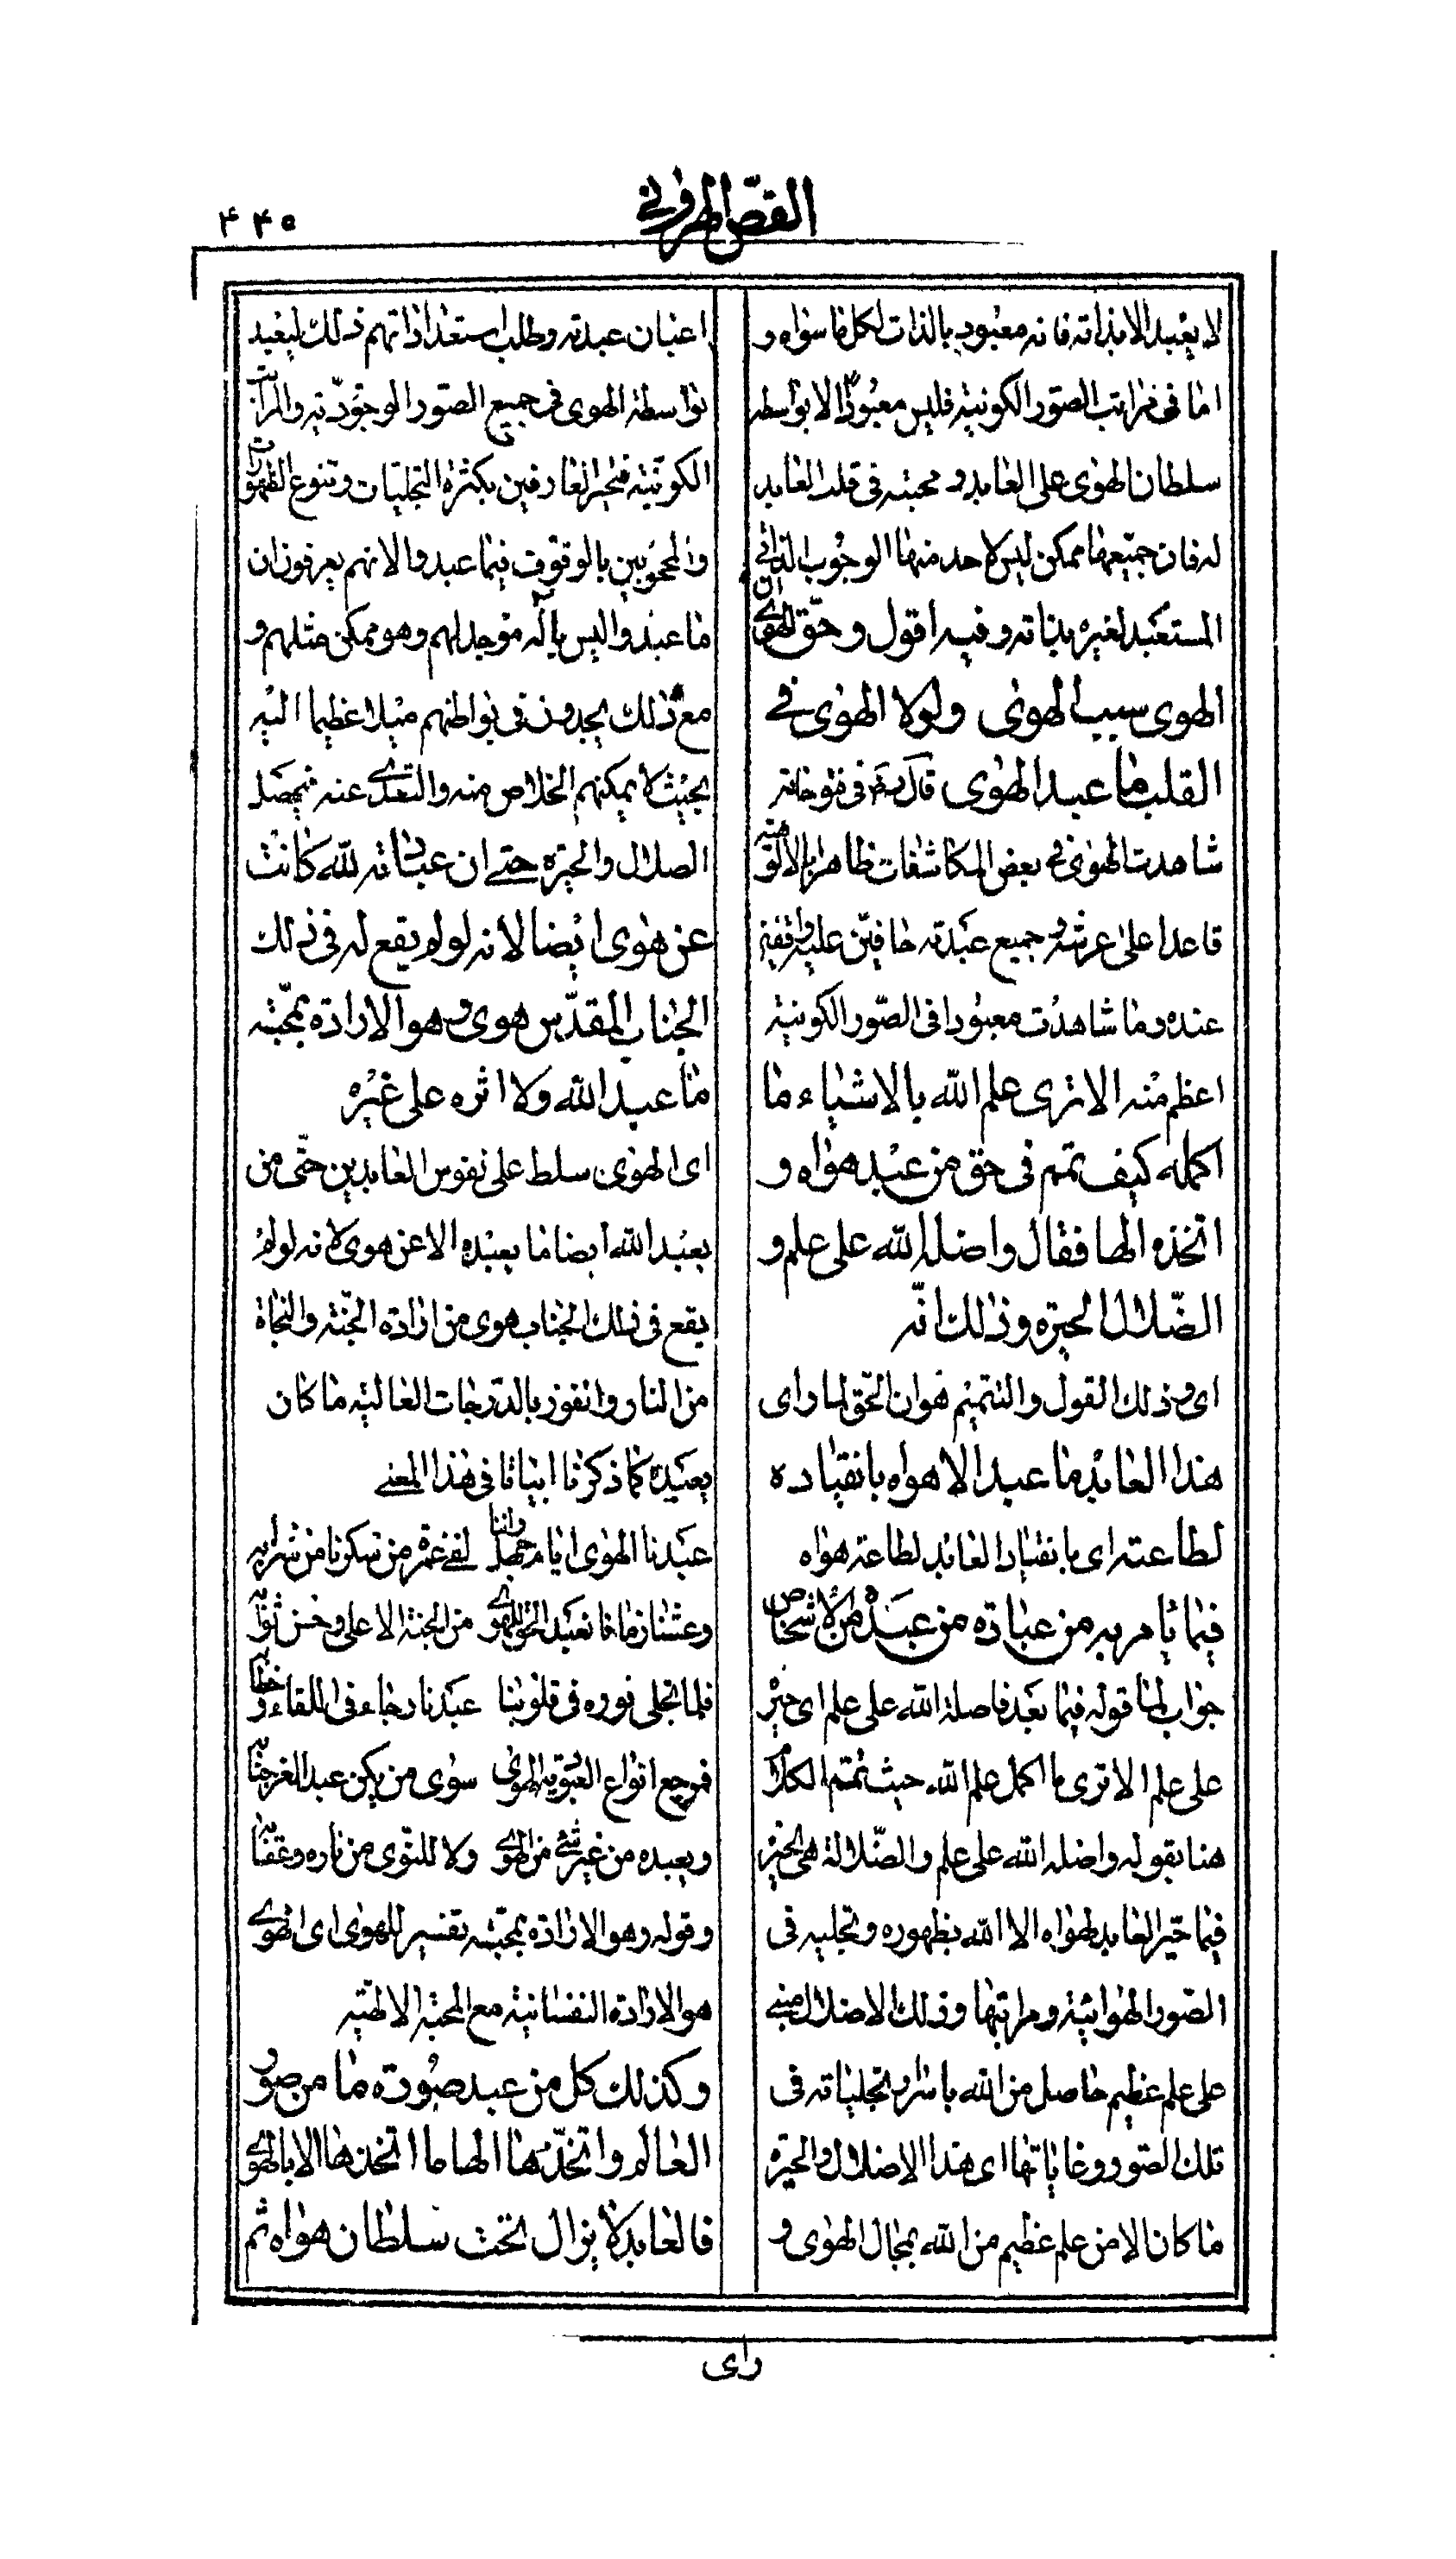 الفصّ الهرونے
۴۴۵
لا يعبد الا بذاته فانه معبود بالذات لكل ما سواه و
اما فى مراتب الصور الكونية فليس معبودا الا بواسطه
سلطان الهوى على العابد و محبته فى قلب العابد
له فان جميعها ممكن ليس لاحد منها الوجوب الذاتے
المستعبد لغيره بذاته و فيه اقول و حقّ الهوى ان
الهوى سبب الهوى ولولا الهوى فے
القلب ما عبد الهوى قال رضه فى فتوحاته
شاهدت الهوى فى بعض المكاشفات ظاهرا بالالوهية
قاعدا على عرشه و جميع عبدته حافين عليه واقفين
عنده وما شاهدت معبودا فى الصّور الكونية
اعظم منه الا ترى علم الله بالاشياء ما
اكمله كيف تمم فى حق من عبد هواه و
اتخذه الها فقال واضله الله على علم و
الضّلال الحيرة وذلك انّه
اى و ذلك القول والتتميم هو ان الحق لما راى
هذا العابد ما عبد الا هواه بانقياده
لطاعته اى بانقياد العابد لطاعة هواه
فيما يامر به من عبادة من عبده من الاشخاص
جواب لما قوله فيما بعد فاضله الله على علم اى حيره
على علم الا ترى ما اكمل علم الله حيث تمم الكلام
هنا بقوله واضله الله على علم والضّلالة هى الحيرة
فما حيّر العابد لهواه الا الله بظهوره و تجليه فى
الصّور الهوائية و مراتبها و ذلك الاضلال مبنے
على علم عظيم حاصل من الله باسرار تجلياته فى
تلك الصور و غاياتها اى هذا الاضلال والحيرة
ما كان الا من علم عظيم من الله بمجال الهوى و
اعيان عبدته و طلب استعداداتهم ذلك ليعبد
بواسطة الهوى فى جميع الصور الوجوديّة والمراتب
الكونيّة فتحير العارفين بكثرة التجليات و تنوع الظهورات
والمحجوبين بالوقوف فيما عبدوا لانهم يعرفون ان
ما عبدوا ليس باله موجد لهم وهو ممكن مثلهم و
مع ذلك يجدون فى بواطنهم ميلا عظيما اليه
بحيث لا يمكنهم الخلاص منه والتعدے عنه فيحصل
الضلال والحيرة حتے ان عبادته لله كانت
عن هوى ايضا لانه لو لم يقع له فى ذلك
الجناب المقدّس هوى وهو الارادة بمحبّة
ما عبد الله ولا اثره على غيره
اى الهوى سلط على نفوس العابدين حتّى من
يعبد الله ايضا ما يعبده الا عن هوى لانه لو لم
يقع فى ذلك الجناب هوى من ارادة الجنّة والنجاة
من النار والفوز بالدّرجات العالية ما كان
يعبده كما ذكرنا ابياتا فى هذا المعنے
عبدنا الهوى ايام جهل واننا لفى غمرة من سكرنا من شرابه
وعشنا زمانا نعبد الحق للهوے من الجنة الاعلى و حسن ثوابه
فلما تجلى نوره فى قلوبنا عبدنا رجاء فى اللقاء و خطابه
فمرجع انواع العبودية الهوى سوى من يكن عبدا لعز جنابه
ويعبده من غير شئ من الهوے ولا للنّوى من ناره وعقابه
و قوله وهو الارادة بمحبّة تفسير للهوى اى الهوے
هو الارادة النفسانية مع المحبة الالهيّة
وكذلك كل من عبد صورة ما من صور
العالم واتخذها الها ما اتخذها الا بالهوى
فالعابد لا يزال تحت سلطان هواه ثم
راى